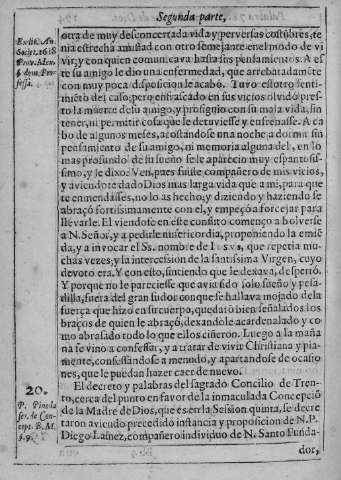 Segunda parte,
Ex lit. An.
Societ. 1618
Prov. Mex.
& dom. Pro-
fessa.
otra de muy desconcertada vida, y perversas costũbres, te
nia estrecha amistad con otro semejante en el modo de vi
vir, y con quien comunicava hasta sus pensamientos. A es
te su amigo le dio una enfermedad, que arrebatadamẽte
con muy poca disposicion le acabó. Tuvo estotro senti-
miẽto del caso, pero enfrascado en sus vicios olvidó pres-
to la muerte de su amigo, y prosiguio con su mala vida, sin
tener, ni permitir cosa que le detuviesse y enfrenasse. A ca
bo de algunos meses, acostandose una noche a dormir sin
pensamiento de su amigo, ni memoria alguna del, en lo
mas profundo de su sueño se le aparecio muy espantosis-
simo, y le dixo: Ven, pues fuiste compañero de mis vicios,
y aviendote dado Dios mas larga vida que a mi, para que
te enmendasses, no lo as hecho; y diziendo y haziendo se
abraçó fortissimamente con el, y empeçó a forcejar para
llevarle. El viendose en este conflito començo a bolverse
a N. Señor, y a pedirle misericordia, proponiendo la emiẽ
da, y a invocar el Ss. nombre de IESVS, que repetia mu
chas vezes; y la intercession de la santissima Virgen, cuyo
devoto era. Y con esto, sintiendo que le dexava, despertó.
Y porque no le pareciesse que avia sido solo sueño y pesa-
dilla, fuera del gran sudor con que se hallava mojado de la
fuerça que hizo en su cuerpo, quedarõ bien señalados los
braços de quien le abraçó, dexandole acardenalado y co-
mo abrasado todo lo que ellos ciñeron. Luego a la maña
na se vino a confessar, y a tratar de vivir Christiana y pia-
mente, confessandose a menudo, y apartandose de ocasio
nes, que le puedan hazer caer de nuevo.
20.
P. Pineda
ser. de Con
cept. B. M.
§. 9.
El decreto y palabras del sagrado Concilio de Tren-
to, cerca del punto en favor de la inmaculada Concepció
de la Madre de Dios, que es en la Session quinta, se decre-
taron aviendo precedido instancia y proposicion de N. P.
Diego Lainez, compañero individuo de N. Santo Funda-
dor,